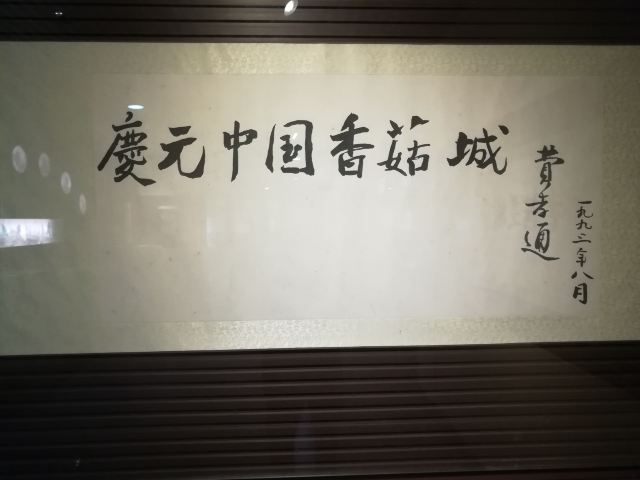 慶元中国香菇城
费孝通
一九九二年八月